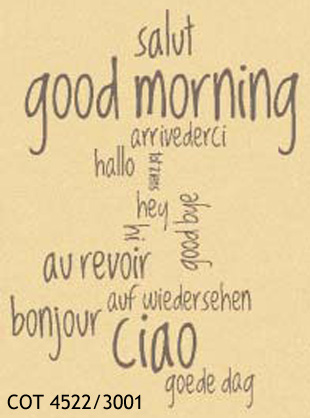 salut
good morning
arrivederci
hallo
hey
hi
good bye
au revoir
auf wiedersehen
bonjour
ciao
goede dag
COT 4522/3001